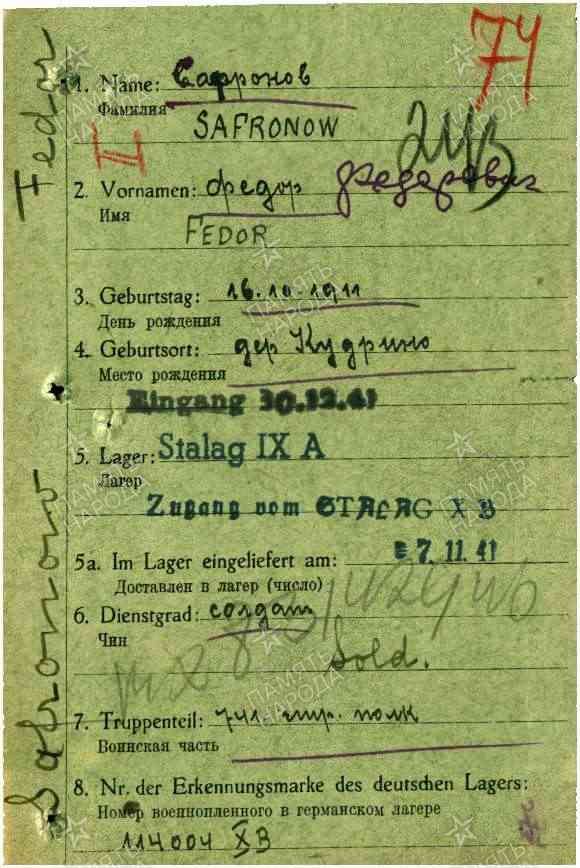 74
1. Name: Сафронов
Фамилия
SAFRONOW
II
2. Vornamen: Федор Федерович
Имя
FEDOR
3. Geburtstag: 16.10.1911
День рождения
4. Geburtsort: дер Кудрино
Место рождения
Eingang 30.12.41
5. Lager: Stalag IX A
Лагер
Zugang vom STALAG X B
5a. Im Lager eingeliefert am: 7. 11. 41
Доставлен в лагер (число)
6. Dienstgrad: солдат
Чин
Sold.
7. Truppenteil: 741 стр. полк
Воинская часть
8. Nr. der Erkennungsmarke des deutschen Lagers:
Номер военнопленного в германском лагере
114004 XB
Safronow Fedor
ПАМЯТЬ НАРОДА